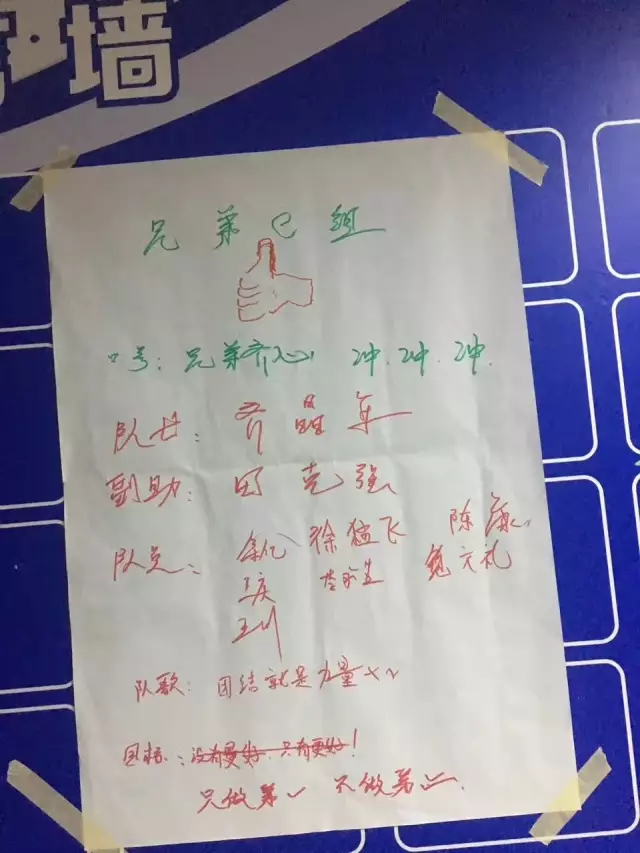 墙
兄弟e组
口号：兄弟齐心 冲.冲.冲.
队长：齐晶军
副助：田克强
队员： 徐猛飞 陈康
王庆 文礼
王川
队歌：团结就是力量×2
目标：没有最好 只有更好！
只做第一 不做第二.